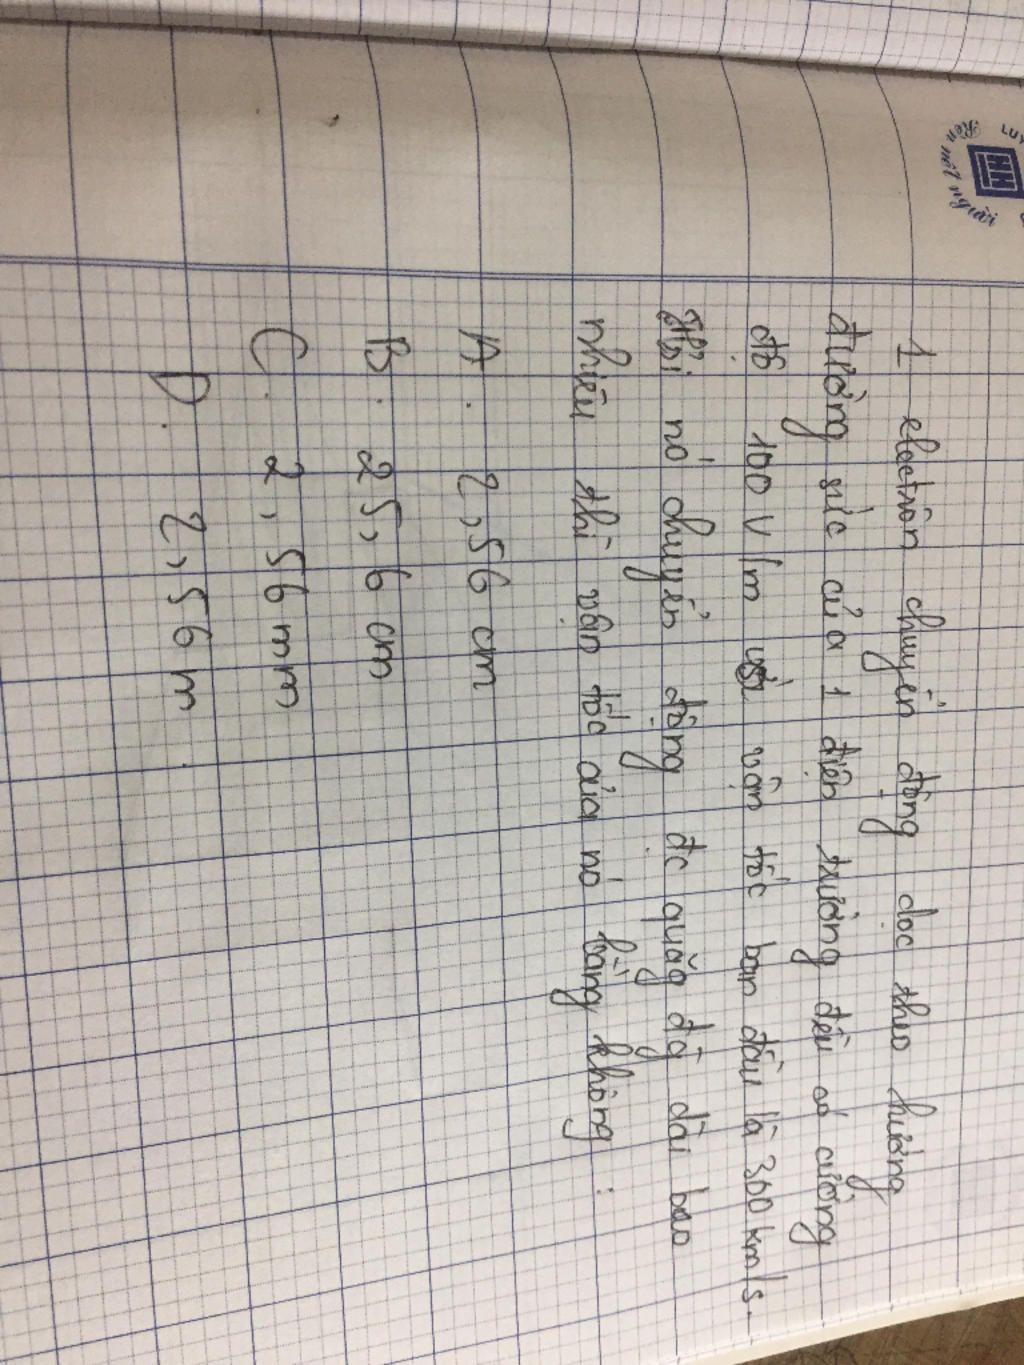 LUY
Rèn nết người
1 electrôn chuyển động dọc theo hướng
đường sức của 1 điện trường đều có cường
độ 100 V/m với vận tốc ban đầu là 300 km/s.
Hỏi nó chuyển động đc quãg độ dài bao
nhiêu thì vận tốc của nó bằng không :
A. 2,56 cm
B. 25,6 cm
C. 2,56 mm
D. 2,56 m.